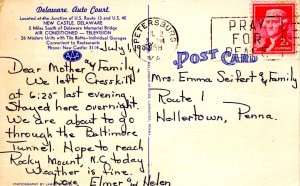 Delaware Auto Court
Located at the Junction of U.S. Route 13 and U.S. 40
NEW CASTLE, DELAWARE
5 Miles South of Delaware Memorial Bridge
AIR CONDITIONED — TELEVISION
26 Modern Units with Tile Baths-Individual Garages
Convenient to Restaurants
Phone: New Castle
AAA
July 1,
Dear Mother & Family,
We left Cresskill
at 6:25 last evening.
Stayed here overnight.
We are about to go
through the Baltimore
Tunnel. Hope to reach
Rocky Mount, N.C. today
Weather is fine.
Love Elmer & Helen
PETERSBURG
VA.
PRAY
FOR
PEACE
2¢
POST CARD
Mrs. Emma Seifert & Family
Route 1
Hellertown, Penna.